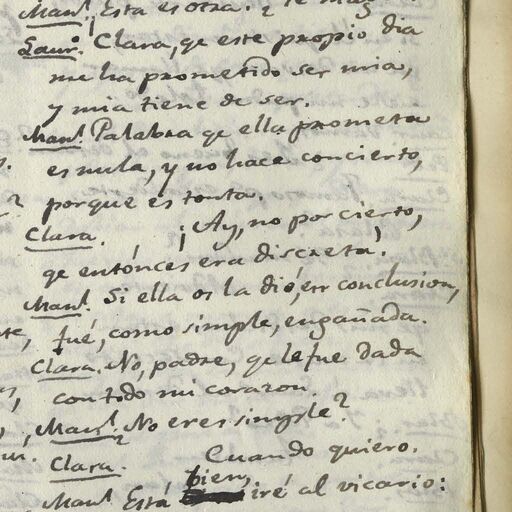 Man.l ¡Esta es otra! ¿y te
Laur.o Clara, qe este propio dia
me ha prometido ser mia,
y mia tiene de ser.
Man.l Palabra qe ella prometa
es nula, y no hace concierto,
porque es tonta.
Clara. ¡Ay, no por cierto,
qe entónces era discreta!
Man.l Si ella os la dió, en conclusion,
fué, como simple, engañada.
Clara. No, padre, qe le fue dada
con todo mi corazon.
Man.l ¿No eres simple?
Clara. Cuando quiero.
Man.l Está bien, iré al vicario: